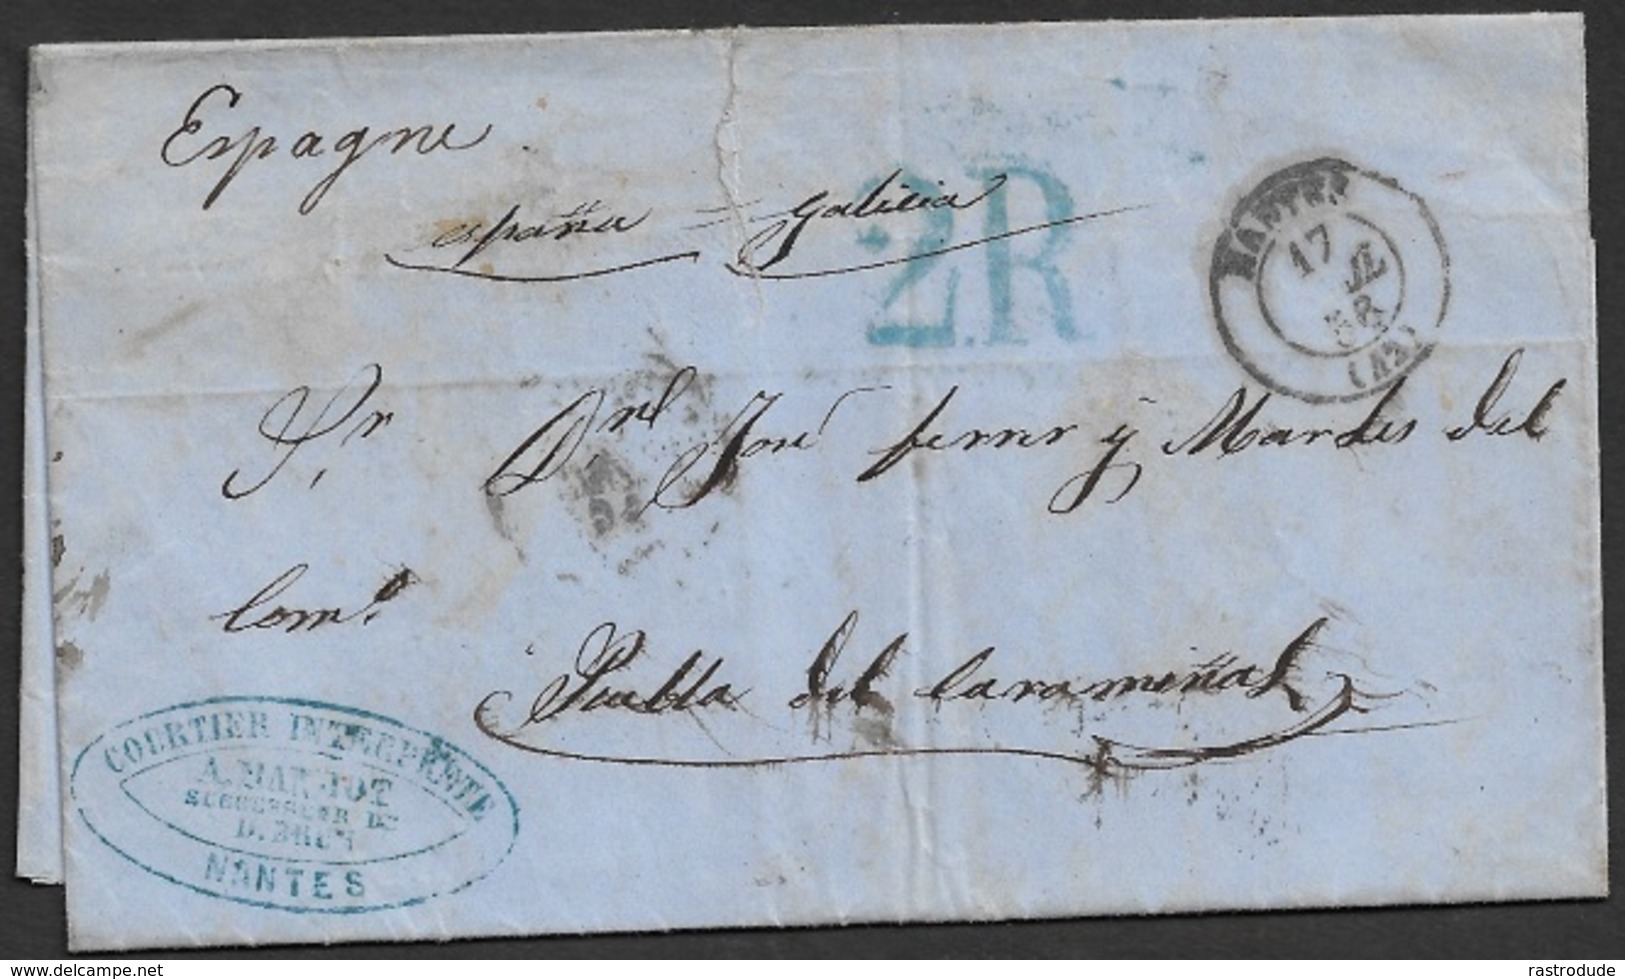 Espagne
españa = Galicia
2R
NANTES
17
JL
58
(42)
Sr Dn José ferrer y Mardes del
Comº
Puebla del Caramiñal
COURTIER INTERPRÈTE
A. MAR
SUCCESSEUR DE
D. BRUN
NANTES
www.delcampe.net
rastrodude